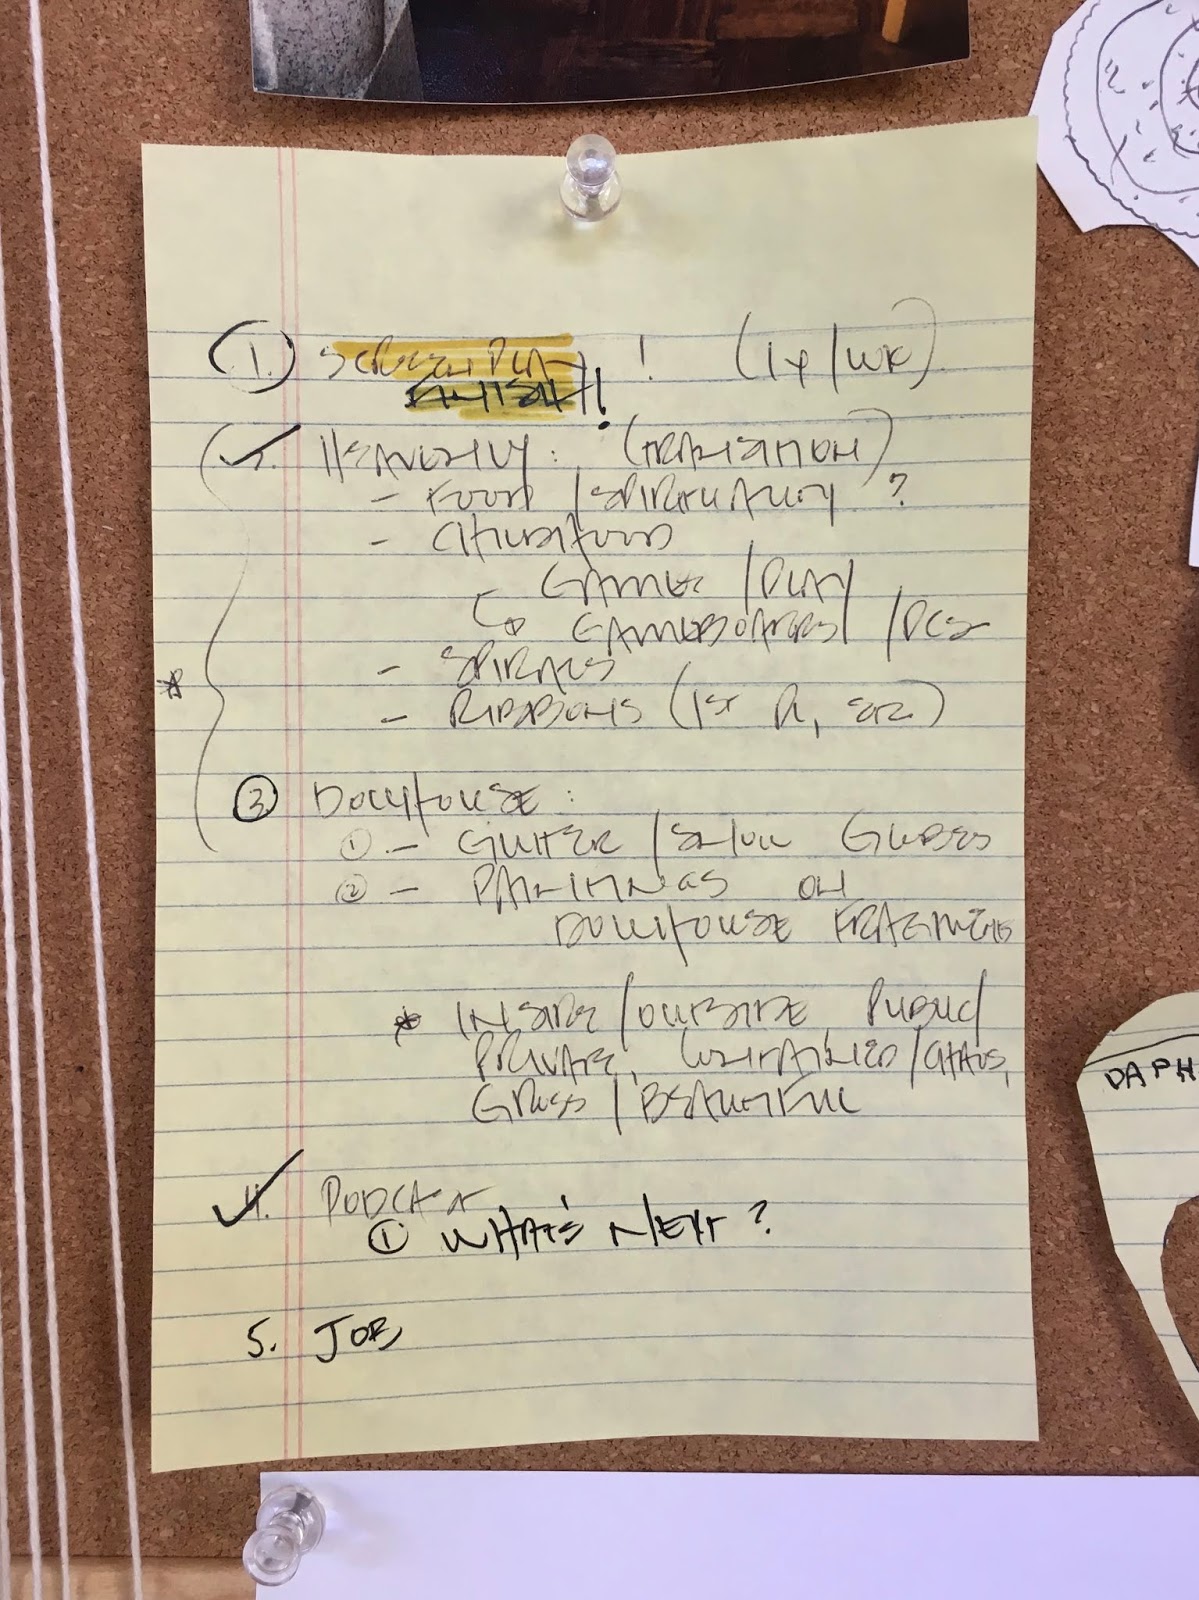 1. SCREENPLAY! (1x/WK)
FINISH!!
2. HEAVENLY: (TRANSITION)
- FOOD /SPIRITUALITY ?
- CHILDHOOD
GAMES /PLAY
GAMEBOARDS/ /PCS
- SPIRALS
- RIBBONS (1ST PL, ETC)
* 3. DOLLHOUSE:
① - GLITTER /SNOW GLOBES
② - PAINTINGS ON
DOLLHOUSE FRAGMENTS
* INSIDE/OUTSIDE, PUBLIC/
PRIVATE, CONTAINED/CHAOS,
GROSS/BEAUTIFUL
4. PODCAST
① WHAT'S NEXT?
5. JOB
DAPH